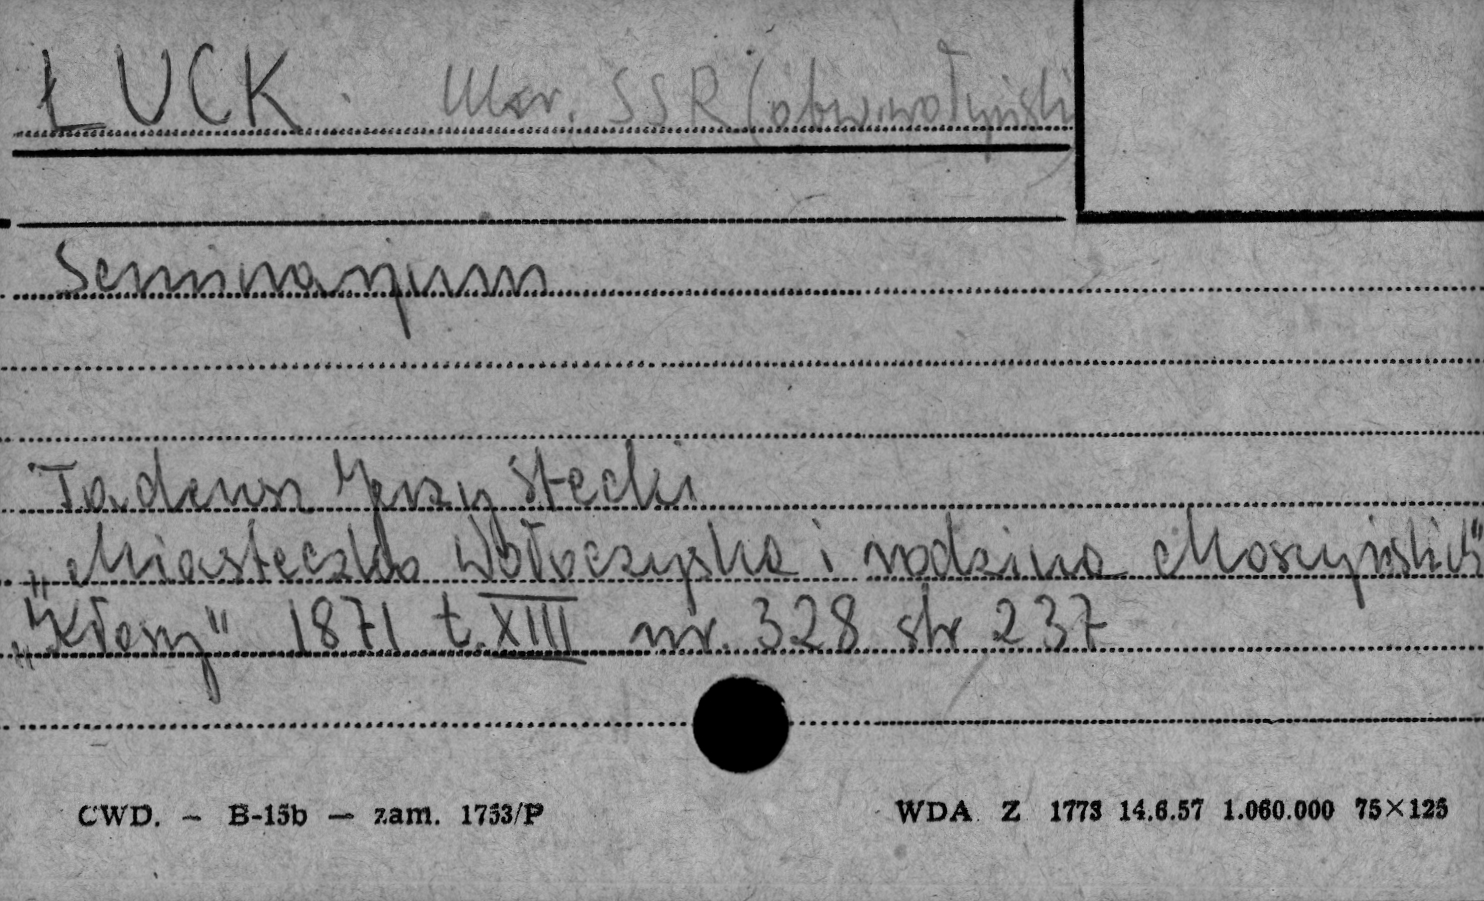 ŁUCK. Ukr. SSR (obw. wołyński
Seminarjum
Tadeusz Jerzy Stecki
„Miasteczko Wołoczyska i rodzina Moszyńskich"
„Kłosy" 1871 t. XIII nr. 328 str 237
CWD. — B-15b — zam. 1753/P WDA Z 1773 14.6.57 1.060.000 75×125